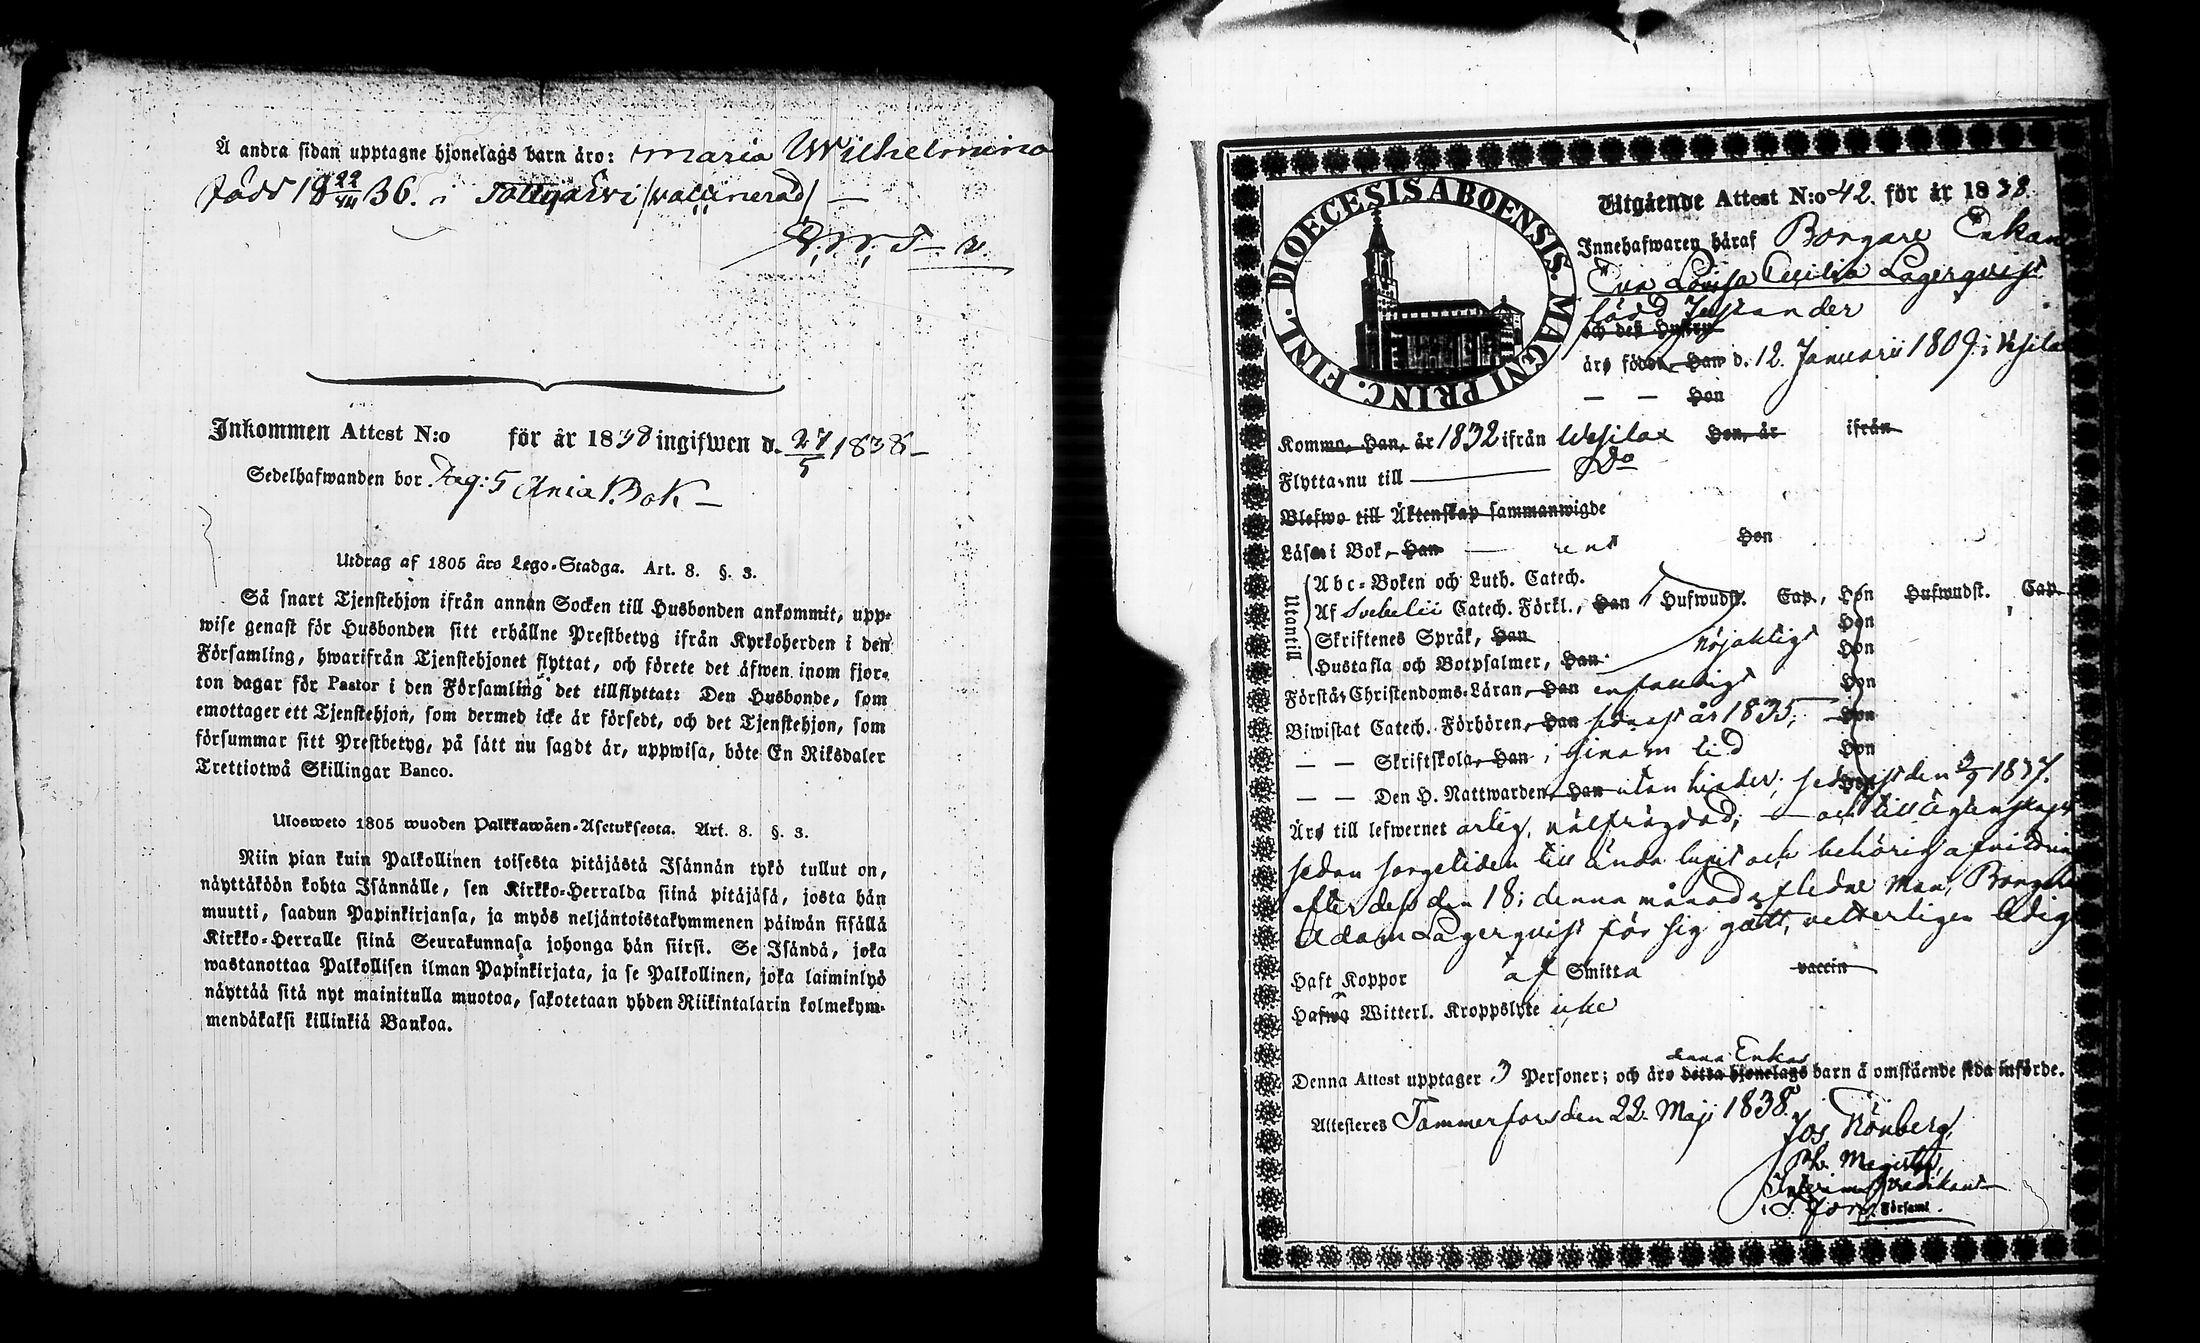 Å andra sidan upptagne hjonelags barn äro: Maria Wilhelmina
född 18 22/VII 36. i Tottijärvi /vaccinerad/ —
Inkommen Attest N:o för år 1838 ingifwen d. 27/5 1838 —
Sedelhafwanden bor Pag: 5 Ania K. Bok —
Utdrag af 1805 års Lego-Stadga. Art. 8. §. 3.
Så snart Tjenstehjon ifrån annan Socken till Husbonden ankommit, upp-
wise genast för Husbonden sitt erhållne Prestbetyg ifrån Kyrkoherden i den
Församling, hwarifrån Tjenstehjonet flyttat, och förete det äfwen inom fjor-
ton dagar för Pastor i den Församling det tillflyttat: Den Husbonde, som
emottager ett Tjenstehjon, som dermed icke är försedt, och det Tjenstehjon, som
försummar sitt Prestbetyg, på sätt nu sagdt är, uppwisa, böte En Riksdaler
Trettiotwå Skillingar Banco.
Ulosweto 1805 wuoden Palkkawäen-Asetuksesta. Art. 8. §. 3.
Niin pian kuin Palkollinen toisesta pitäjästä Isännän tykö tullut on,
näyttäköön kohta Isännälle, sen Kirkko-Herralda siinä pitäjäsä, josta hän
muutti, saadun Papinkirjansa, ja myös neljäntoistakymmenen päiwän sisällä
Kirkko-Herralle siinä Seurakunnasa johonga hän siirsi. Se Isändä, joka
wastanottaa Palkollisen ilman Papinkirjata, ja se Palkollinen, joka laiminlyö
näyttää sitä nyt mainitulla muotoa, sakotetaan yhden Riikintalarin kolmekym-
mendäkaksi killinkiä Bankoa.
DIOECESIS ABOENSIS. MAGNI PRINC. FINL.
Utgående Attest N:o 42. för år 1838.
Innehafwaren häraf Borgare Enkan
Eva Lovisa Cecilia Lagerqvist
född Justander
och deß Hustru
äro födde, Han d. 12. Januarii 1809. i Wesilax
— — Hon
Komme, Han, år 1832 ifrån Wesilax Hon, år ifrån
Flytta nu till — Do
Blefwo till Äktenskap sammanwigde
Läsa i Bok, Han — rent Hon
Utantill
Abc-Boken och Luth. Catech.
Af Svebelii Catech. Förkl., Han Hufwudst. Cap, Hon Hufwudst. Cap
Skriftenes Språk, Han Hon
Hustafla och Botpsalmer, Han nöjaktigt Hon
Förstå Christendoms-Läran, Han enfaldigt Hon
Biwistat Catech. Förhören, Han senast år 1835; Hon
— — Skriftskola, Han i sinom tid Hon
— — Den H. Nattwarden, Han utan hinder, sednast den 3/9 1837.
Äro till lefwernet ärlig, välfrägdad; — och till ägtenskap
sedan sorgetiden till ända lupit och behörig afvittring
efter dess den 18: denna månad aflidne Man, Borgaren
Adam Lagerqvist för sig gått, vetterligen ledig
Haft Koppor af Smitta vaccin
Hafwa Witterl. Kroppslyte icke
denna Enkas
Denna Attest upptager 3 Personer; och äro detta hjonelags barn å omstående sida införde.
Attesteres Tammerfors den 22. Maji 1838.
Jos. Rönberg,
Ph. Magister,
Interims Predikant
i T:fors Församl.